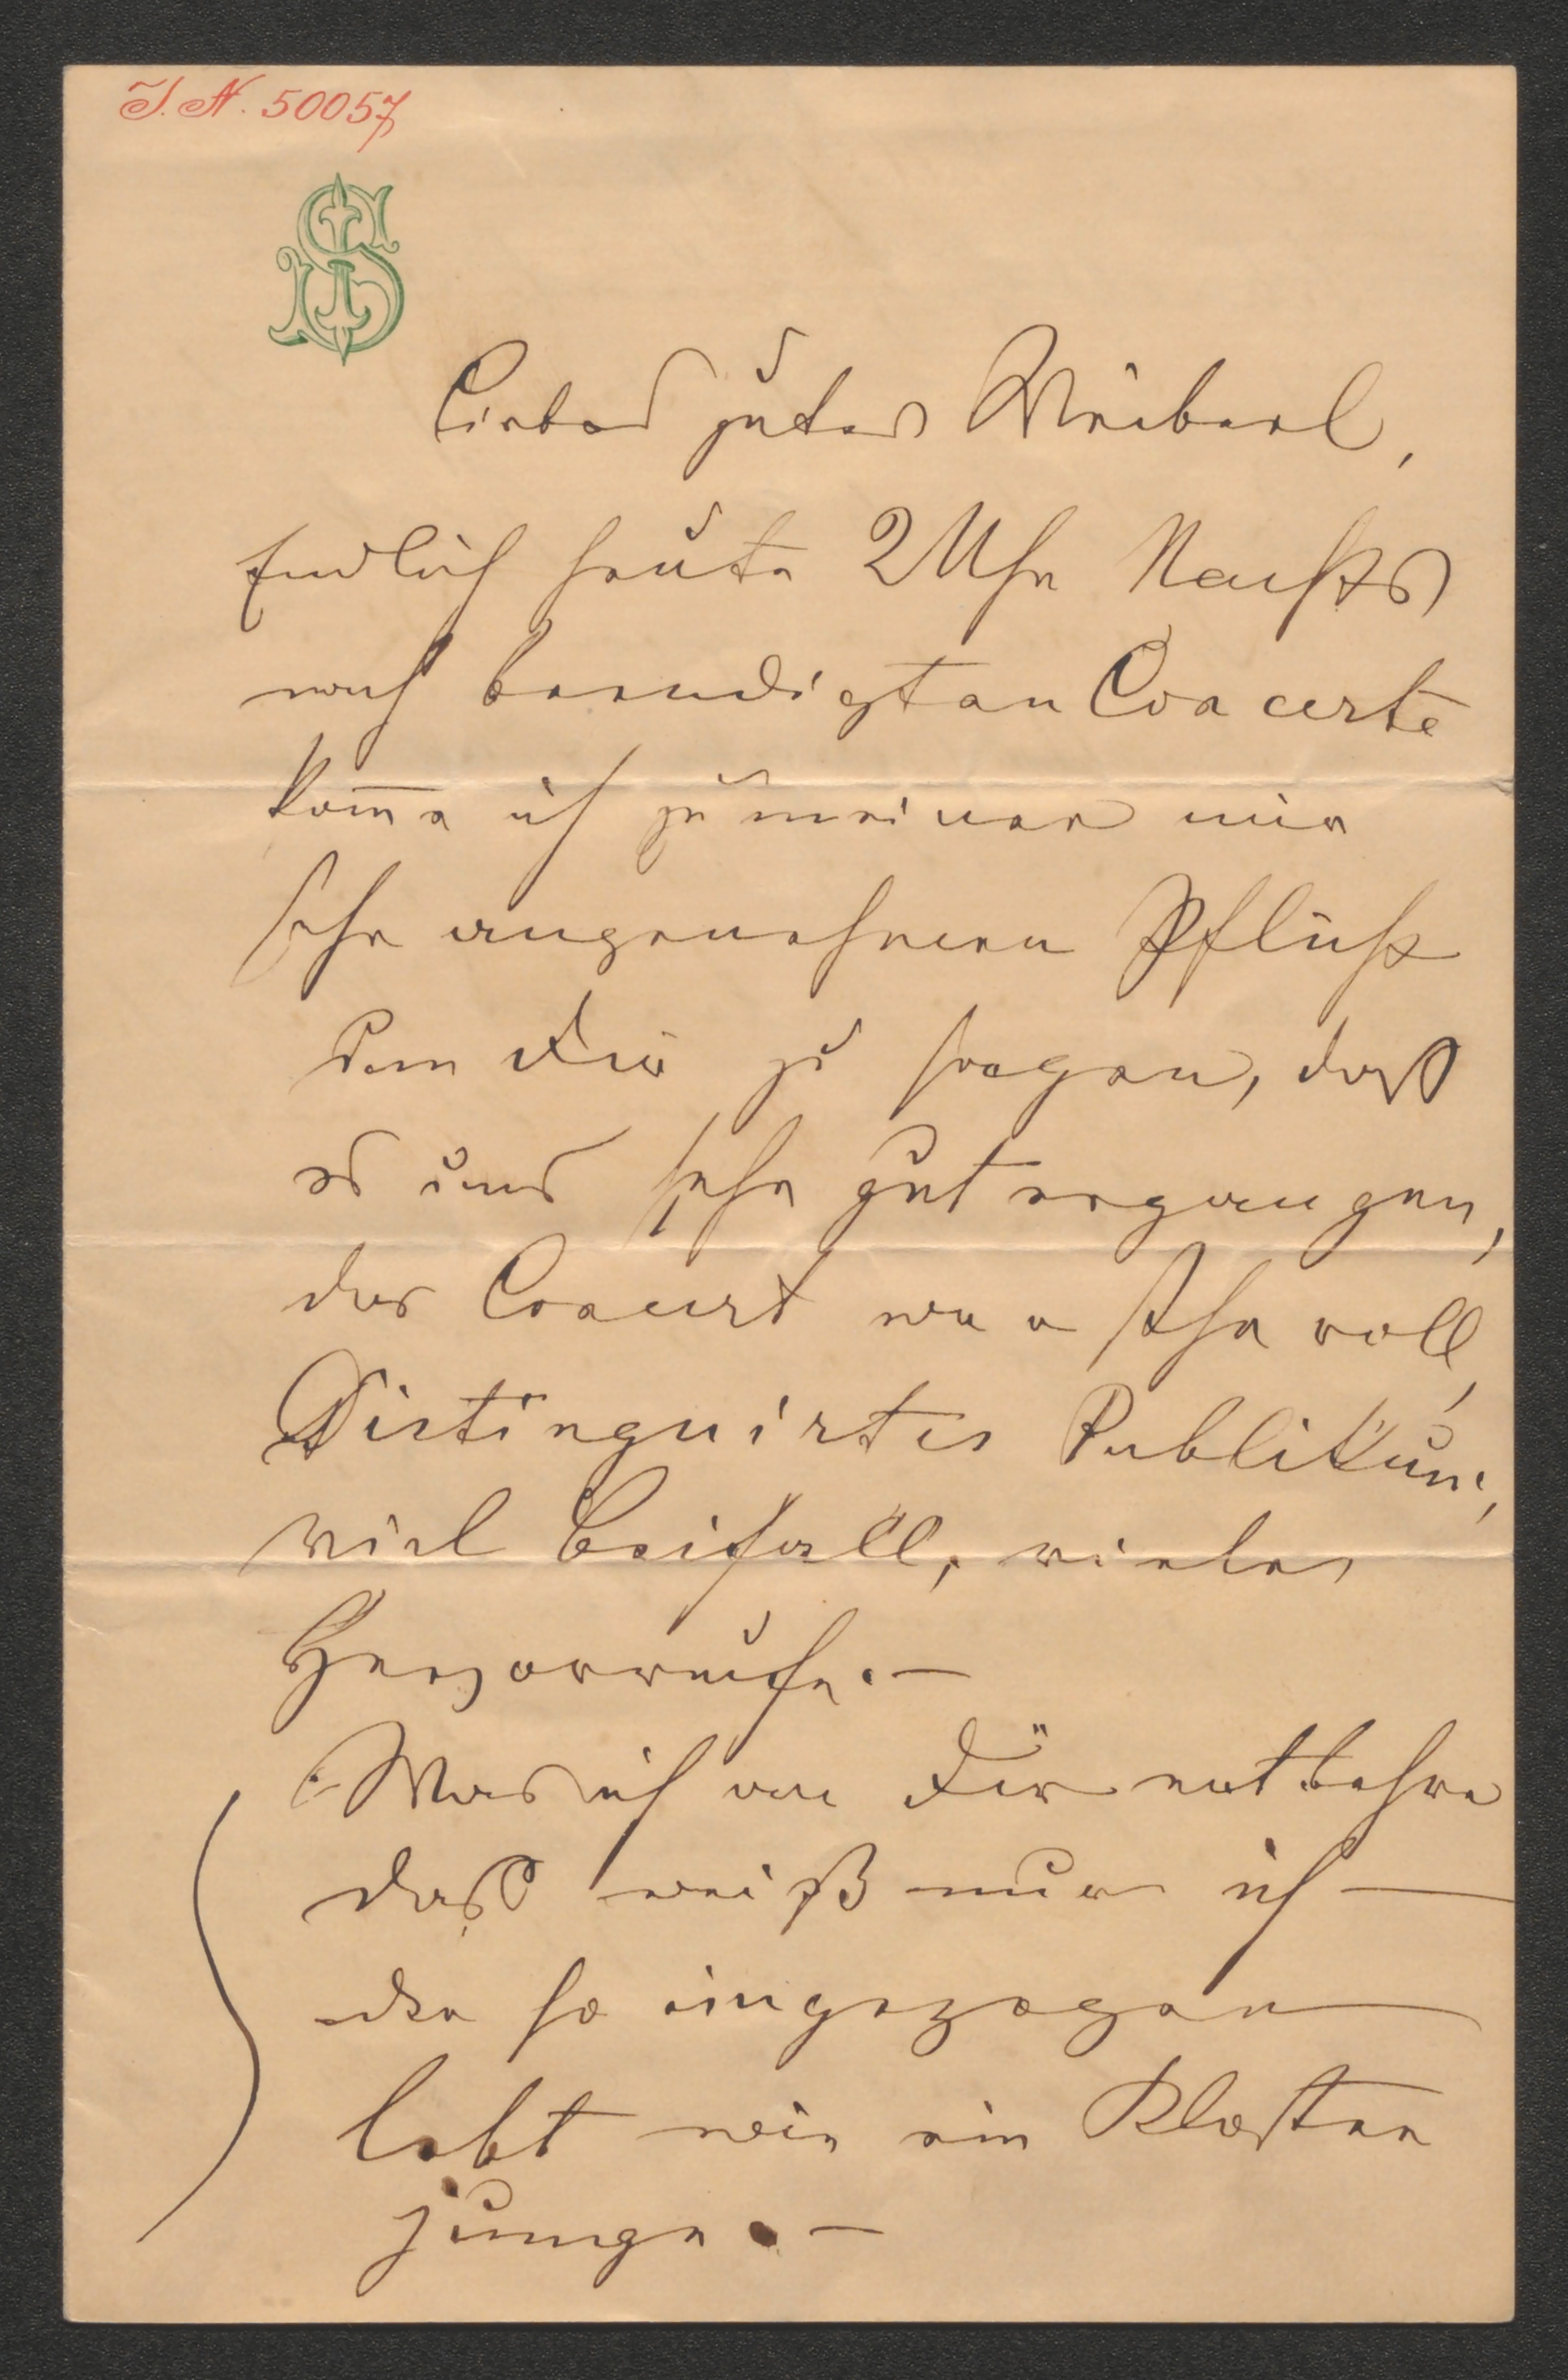 I. N. 50057
JS
Liebes gutes Weiberl,
Endlich heute 2 Uhr Nachts
nach beendigtem Concerte
kom̅e ich zu meiner mir
sehr angenehmen Pflicht
Dir zu sagen, daß
es uns sehr gut ergangen,
das Concert war sehr voll,
Distinguirtes Publikum,
viel Beifall, viele
Hervorrufe. —
Was ich an Dir entbehre
daß weiß nur ich —
der so eingezogen
lebt wie ein Kloster
junge. —